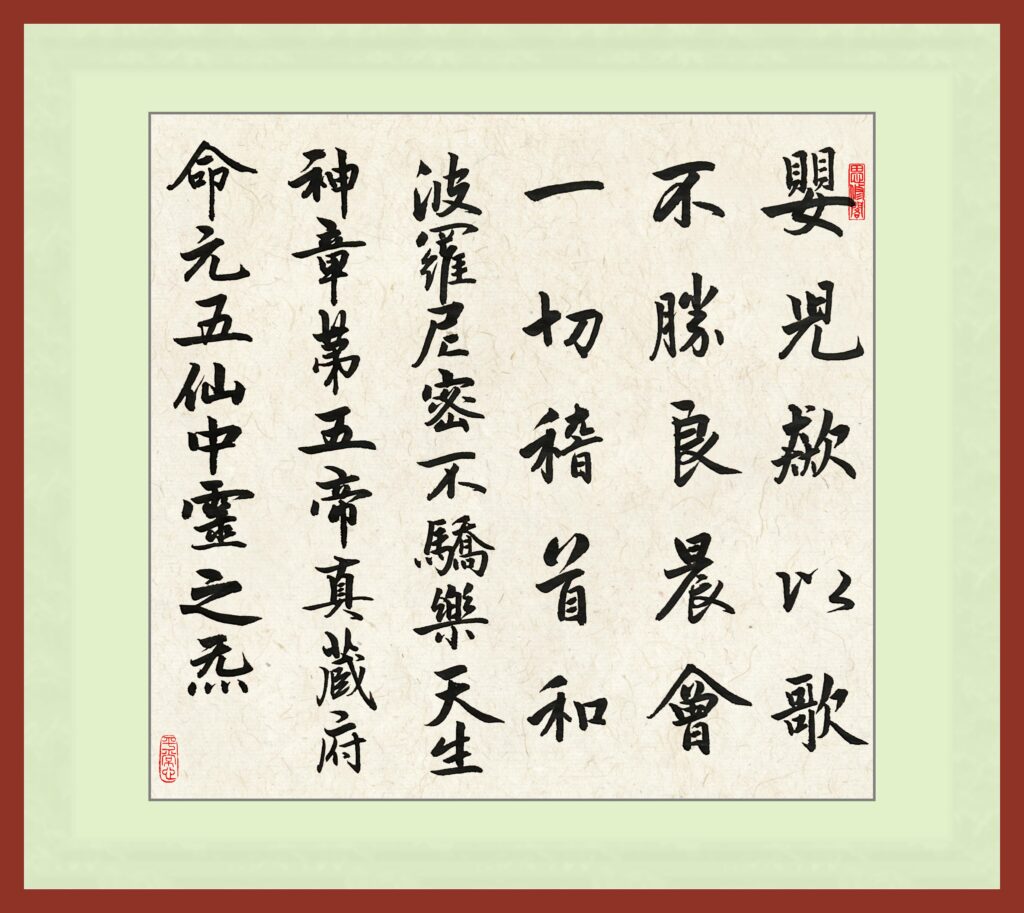 嬰兒歘以歌
不勝良晨會
一切稽首和
波羅尼密不驕樂天生
神章第五帝真藏府
命元五仙中靈之炁
平常心